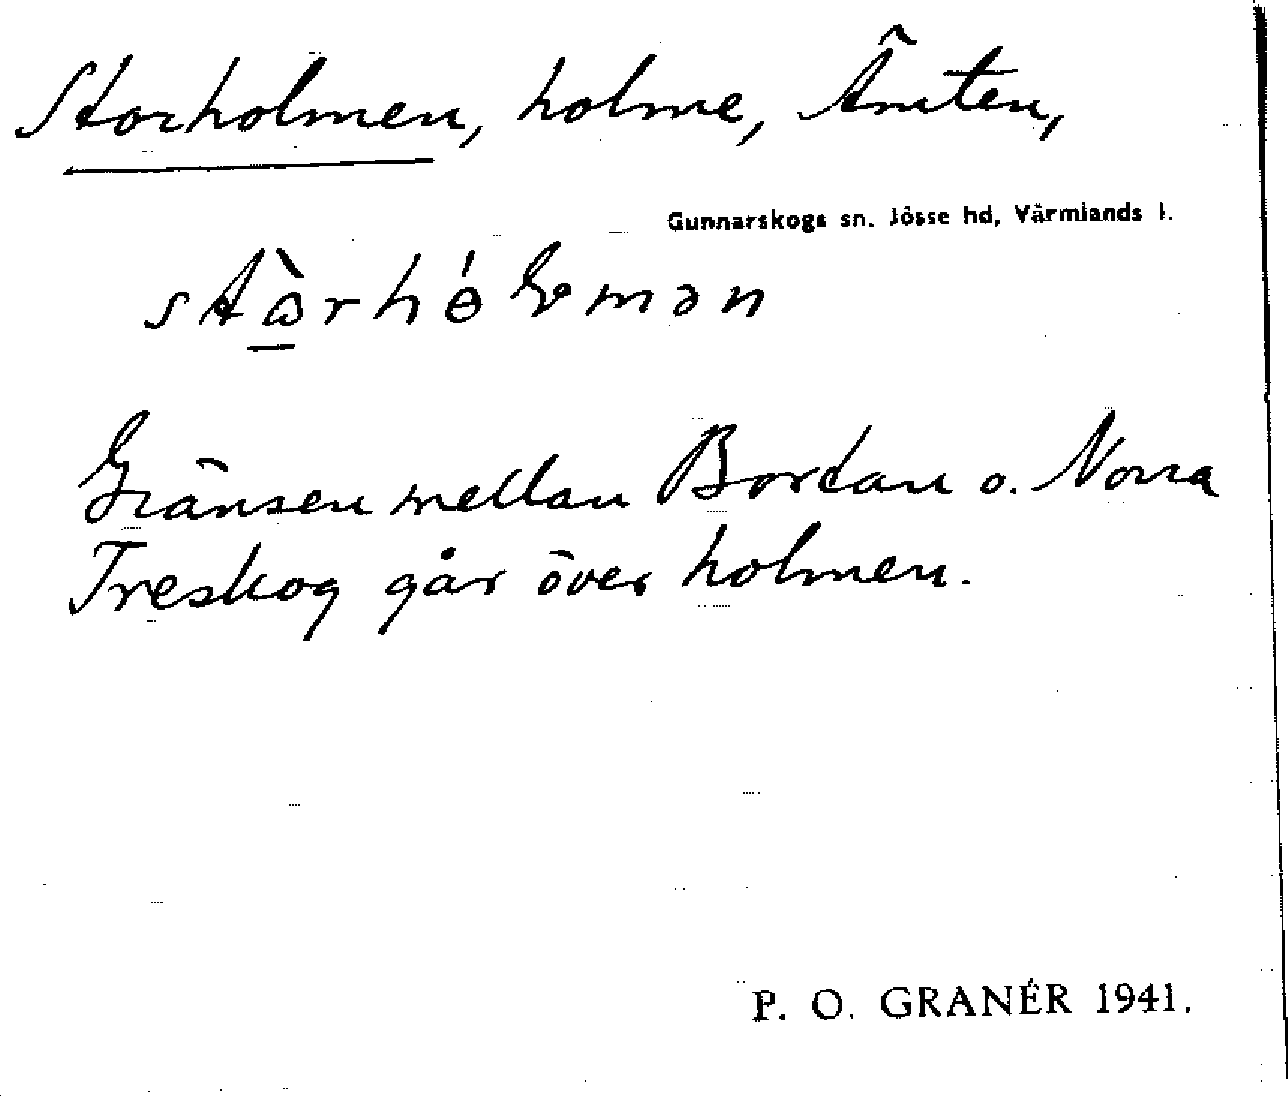 Storholmen, holme, Ämten,
Gunnarskogs sn. Jösse hd, Värmlands l.
Gränsen mellan Bortan o. Norra
Treskog går över holmen.
P. O. GRANÉR 1941.